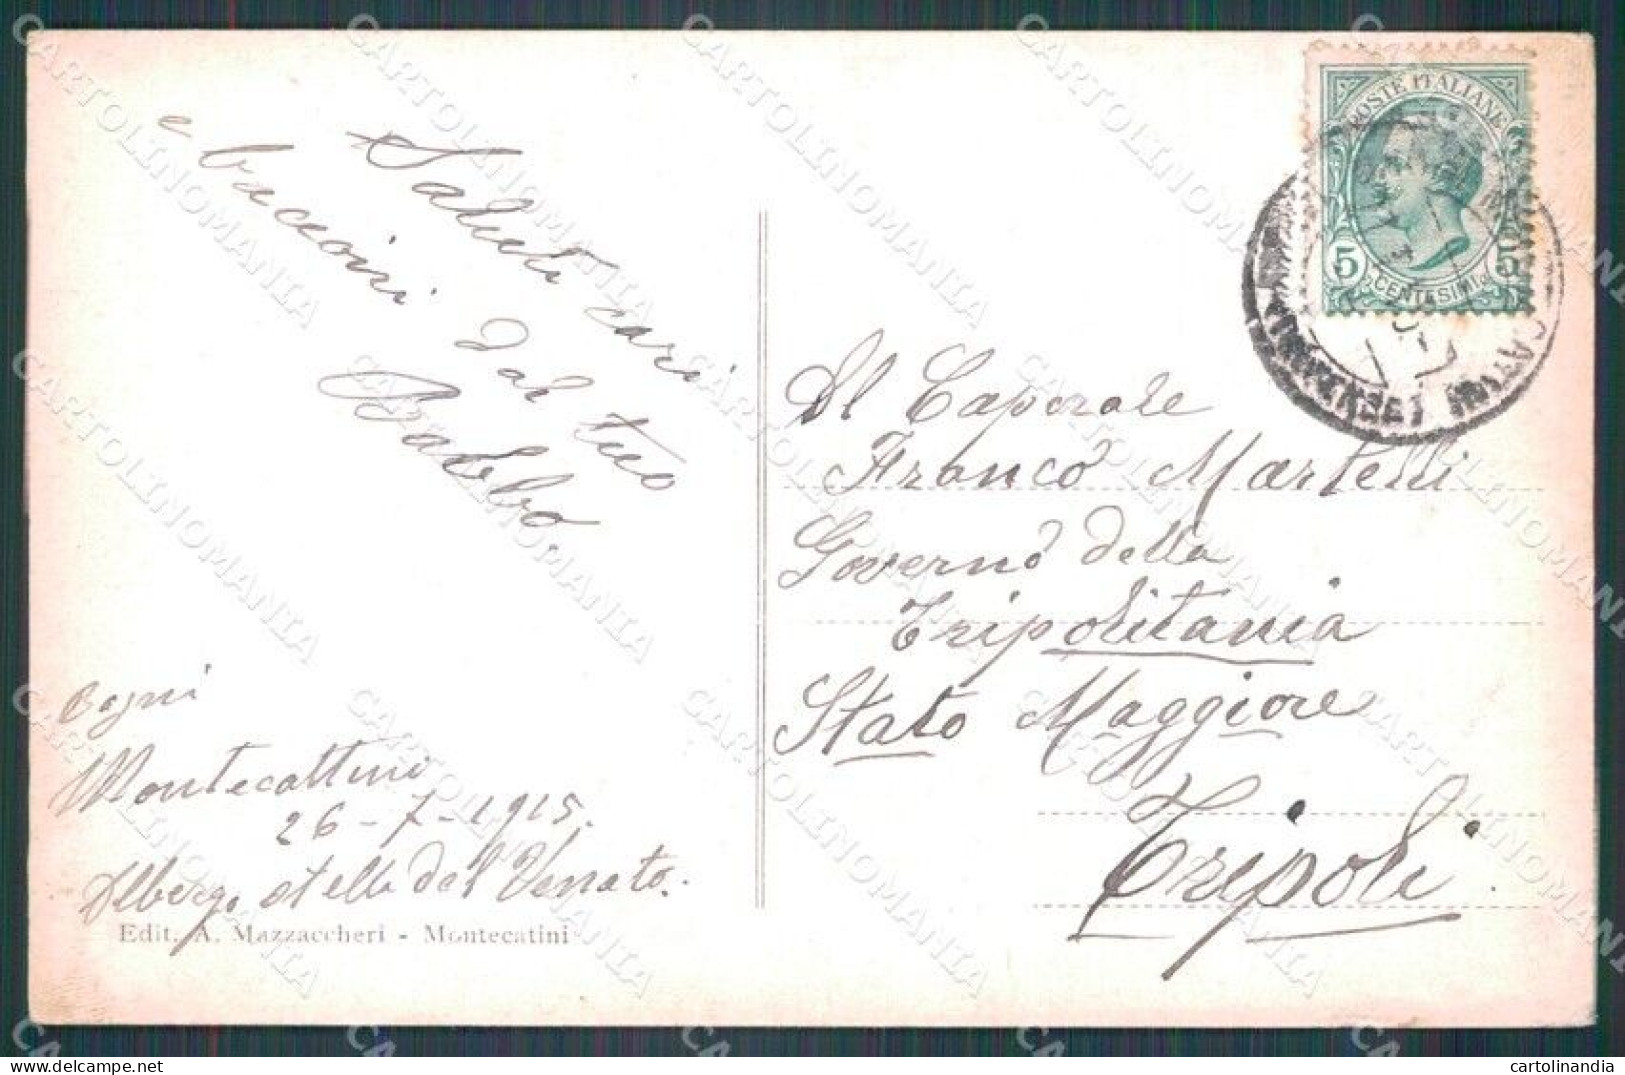 Saluti cari
e baccini dal tuo
Babbo
Bagni
Montecattini
26-7-1915.
Albergo Stella del Venato.
Edit. A. Mazzaccheri - Montecatini
POSTE ITALIANE
5 CENTESIMI 5
Al Caporale
Franco Martelli
Governo della
Tripolitania
Stato Maggiore
Tripoli
CARTOLINOMANIA
cartolinandia